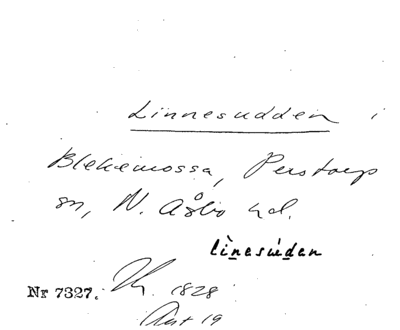 Linnesudden i
Blekemossa, Perstorp
sn, N. Åsbo hd.
linesuden
Nr 7327. 1828
Art 19